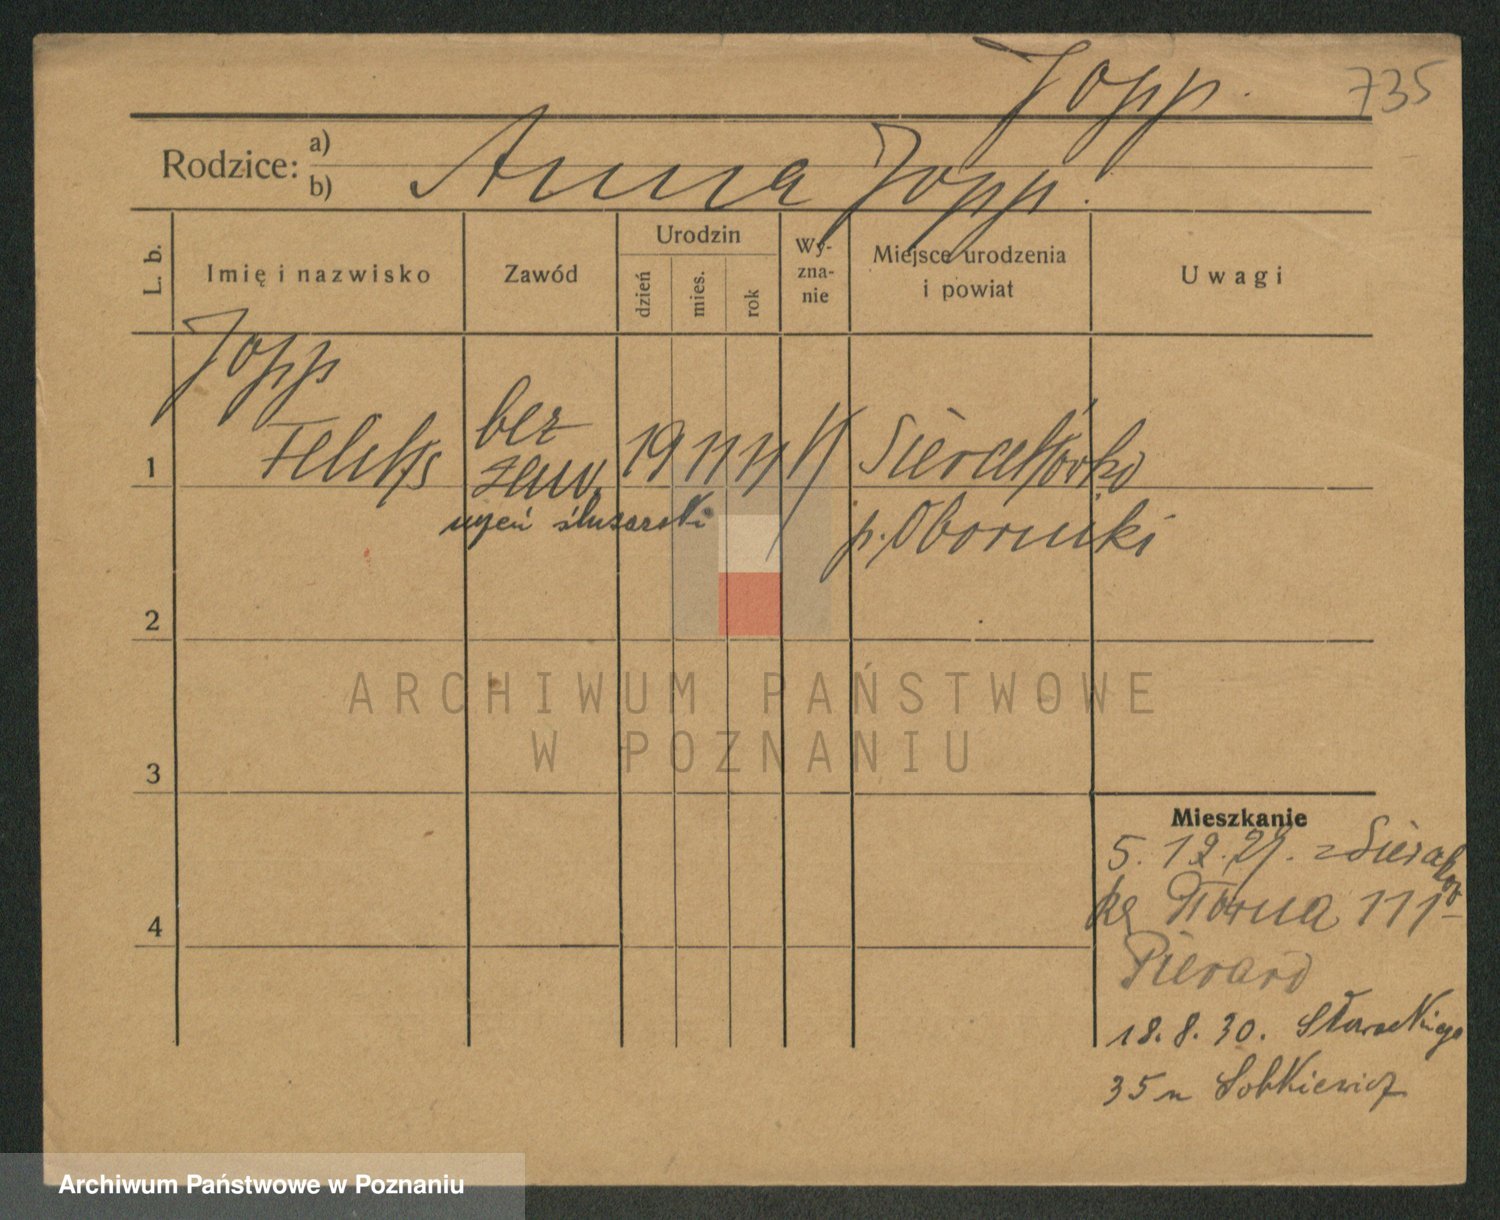 Jopp.
735
Rodzice: a)
b) Anna Jopp.
L. b.
Imię i nazwisko
Zawód
Urodzin
dzień
mies.
rok
Wy-
zna-
nie
Miejsce urodzenia
i powiat
Uwagi
Jopp
1 Feliks
bez
zaw.
uczeń ślusarski
19 11 11
p. Oborniki
2
3
4
ARCHIWUM PAŃSTWOWE
W POZNANIU
Mieszkanie
5. 12. 27. z
Górna 111
Pierard
18. 8. 30. Słowackiego
35 u Sobkiewicz
Archiwum Państwowe w Poznaniu